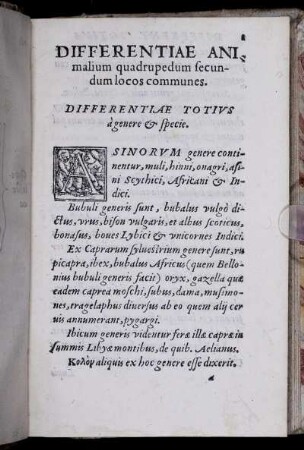 DIFFERENTIAE ANI-
malium quadrupedum secun-
dum locos communes.
DIFFERENTIAE TOTIVS
à genere & specie.
ASINORVM genere conti-
nentur, muli, hinni, onagri, asi-
ni Scythici, Africani & In-
dici.
Bubuli generis sunt, bubalus vulgò di-
ctus, vrus, bison vulgaris, et albus scoticus,
bonasus, boues Lybici & vnicornes Indici.
Ex Caprarum syluestrium genere sunt, ru
picapra, ibex, bubalus Africus (quem Bello-
nius bubuli generis facit) oryx, gazella quæ
eadem caprea moschi, subus, dama, musimo-
nes, tragelaphus diuersus ab eo quem alij cer
uis annumerant, pygargi.
Ibicum generis videntur feræ illæ capræ in
summis Libyæ montibus, de quib. Aelianus.
Κολὸν aliquis ex hoc genere esse dixerit.
a